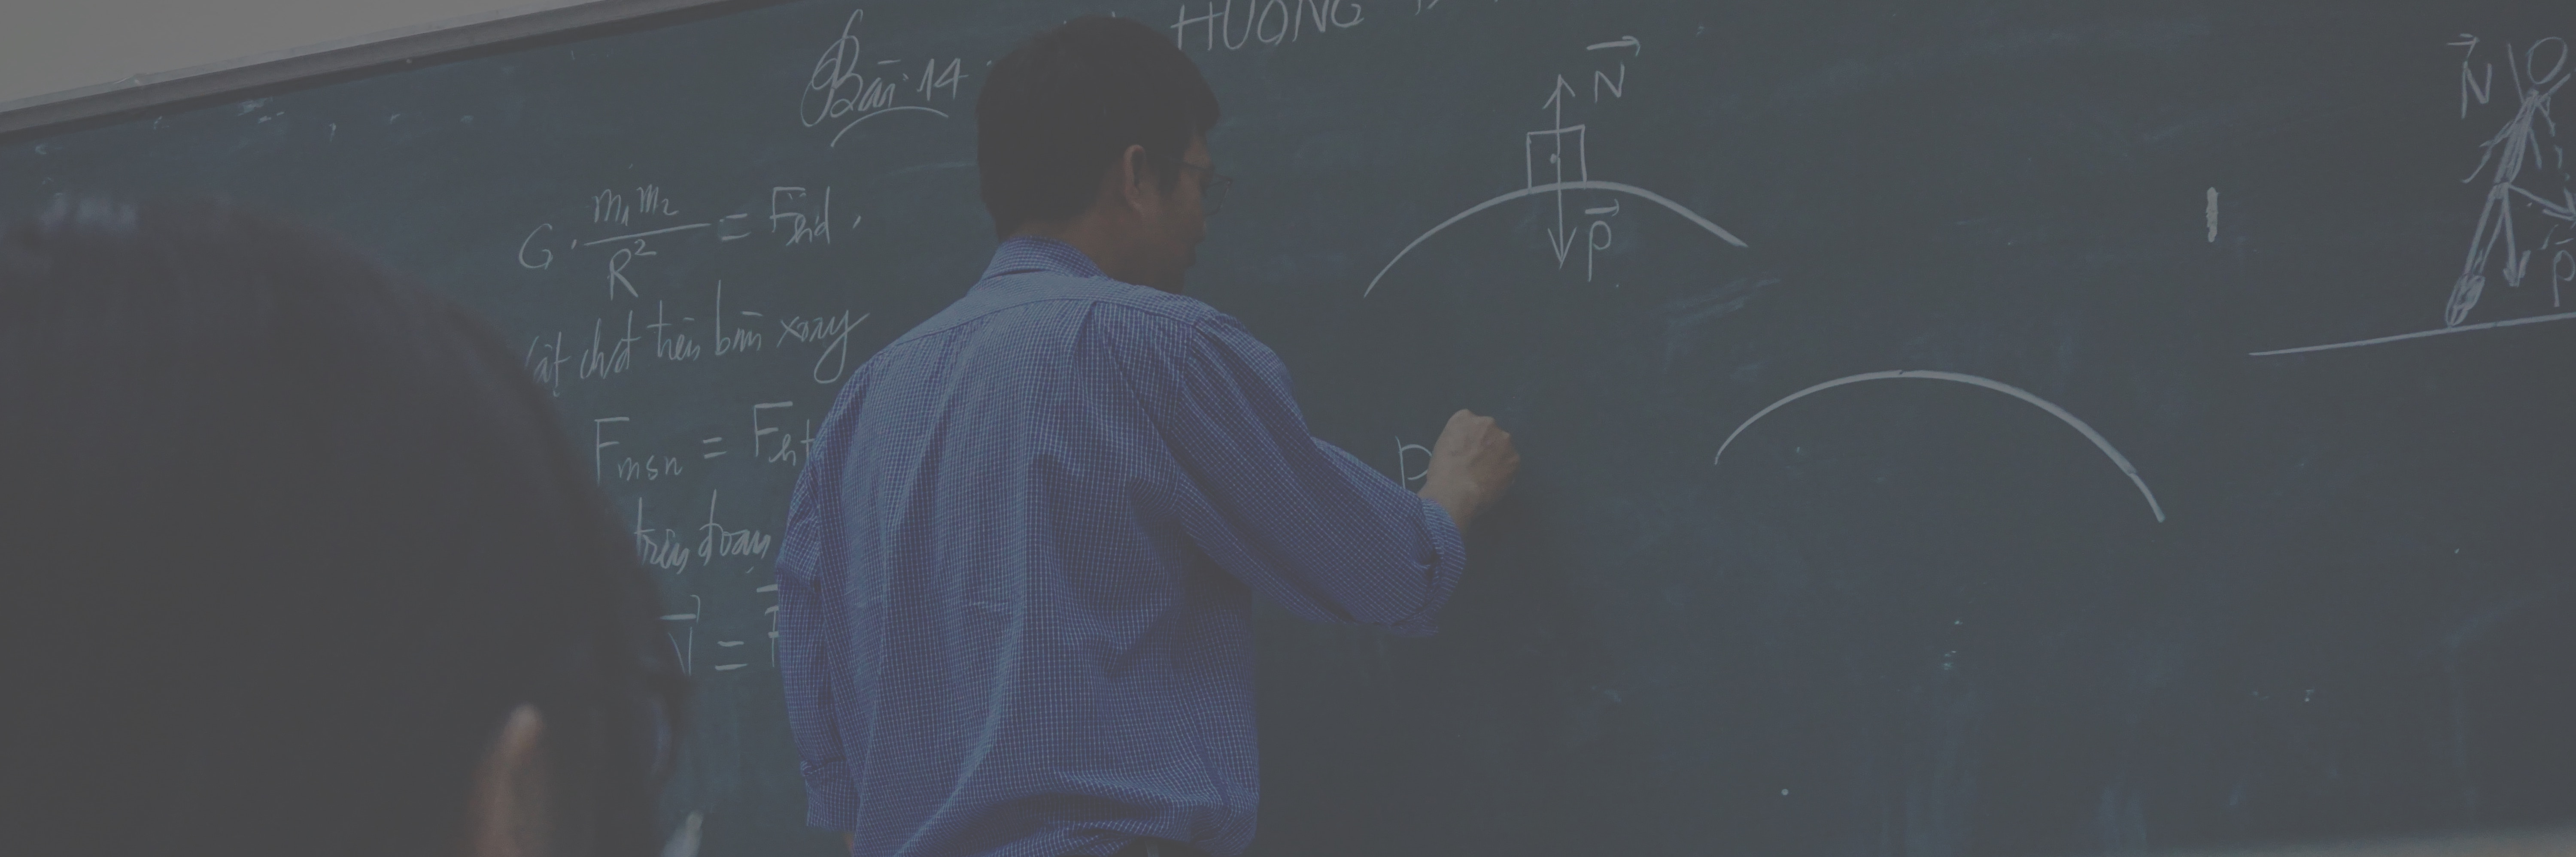 Bài 14
HƯỚNG
G . m₁m₂ / R² = Fhd .
chất trên bàn xoay
Fmsn = Fht
trên đoạn
N⃗ =
N⃗
P⃗
P
N⃗
P⃗